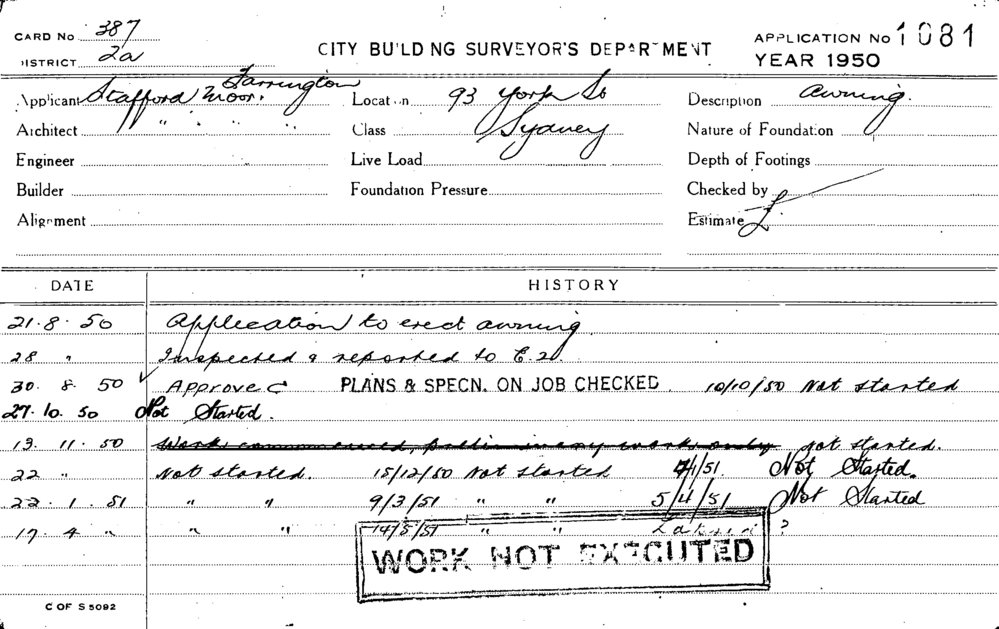 CARD No 387
DISTRICT 2a
CITY BUILDING SURVEYOR'S DEPARTMENT
APPLICATION No 1081
YEAR 1950
Applicant Stafford Moor. Farrington
Location 93 York St
Description Awning.
Architect " " " "
Class Sydney
Nature of Foundation
Engineer
Live Load
Depth of Footings
Builder
Foundation Pressure
Checked by
Alignment
Estimate £
DATE HISTORY
21.8.50 Application to erect awning.
28 " Inspected & reported to
30.8.50 Approved PLANS & SPECN. ON JOB CHECKED. 10/10/50 Not started
27.10.50 Not Started.
13.11.50 Work commenced, preliminary work, only not started.
22 " Not started. 15/12/50 Not started 4/1/51 Not Started.
22.1.51 " " 9/3/51 " " 5/4/51 Not Started
17.4 " " " 14/5/51 " " ?
WORK NOT EXECUTED
C OF S 5092